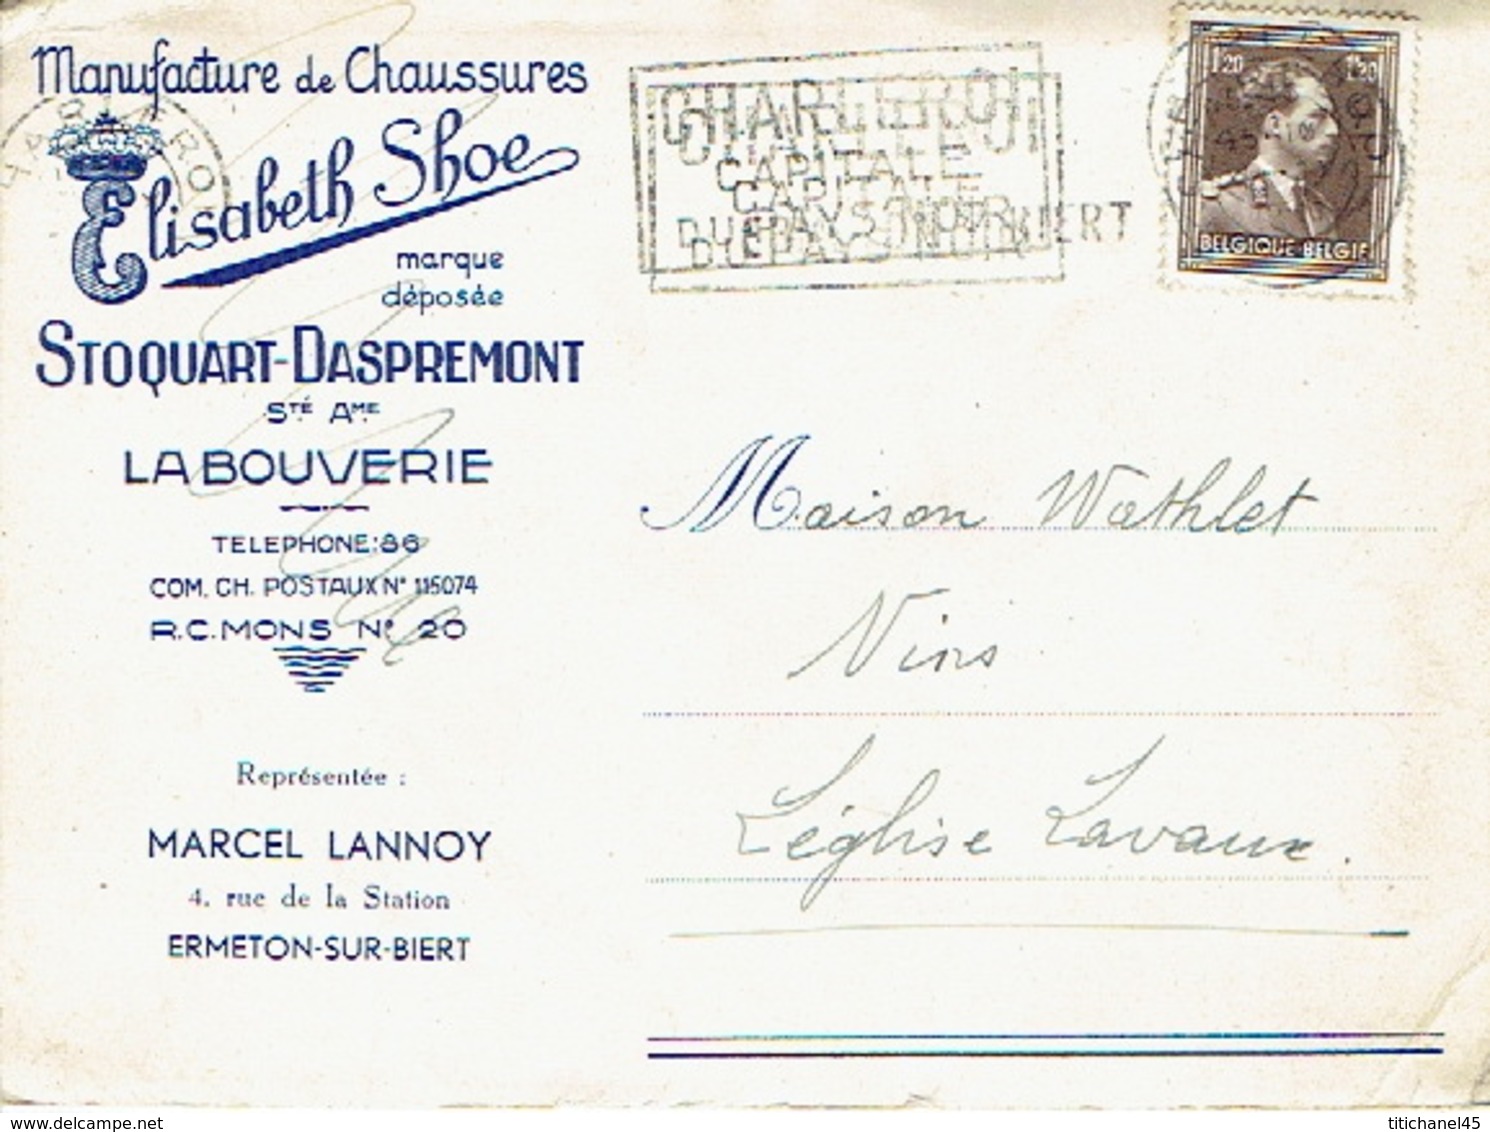 Manufacture de Chaussures
Elisabeth Shoe
marque
déposée
STOQUART-DASPREMONT
STÉ AME
LA BOUVERIE
TELEPHONE: 86
COM. CH. POSTAUX N° 115074
R.C. MONS N° 20
Représentée :
MARCEL LANNOY
4. rue de la Station
ERMETON-SUR-BIERT
CHARLEROI
CAPITALE
DU PAYS NOIR
BIERT
1.20 1.20
BELGIQUE-BELGIE
Maison Wathlet
Vins
Léglise Lavaux.
titichanel45